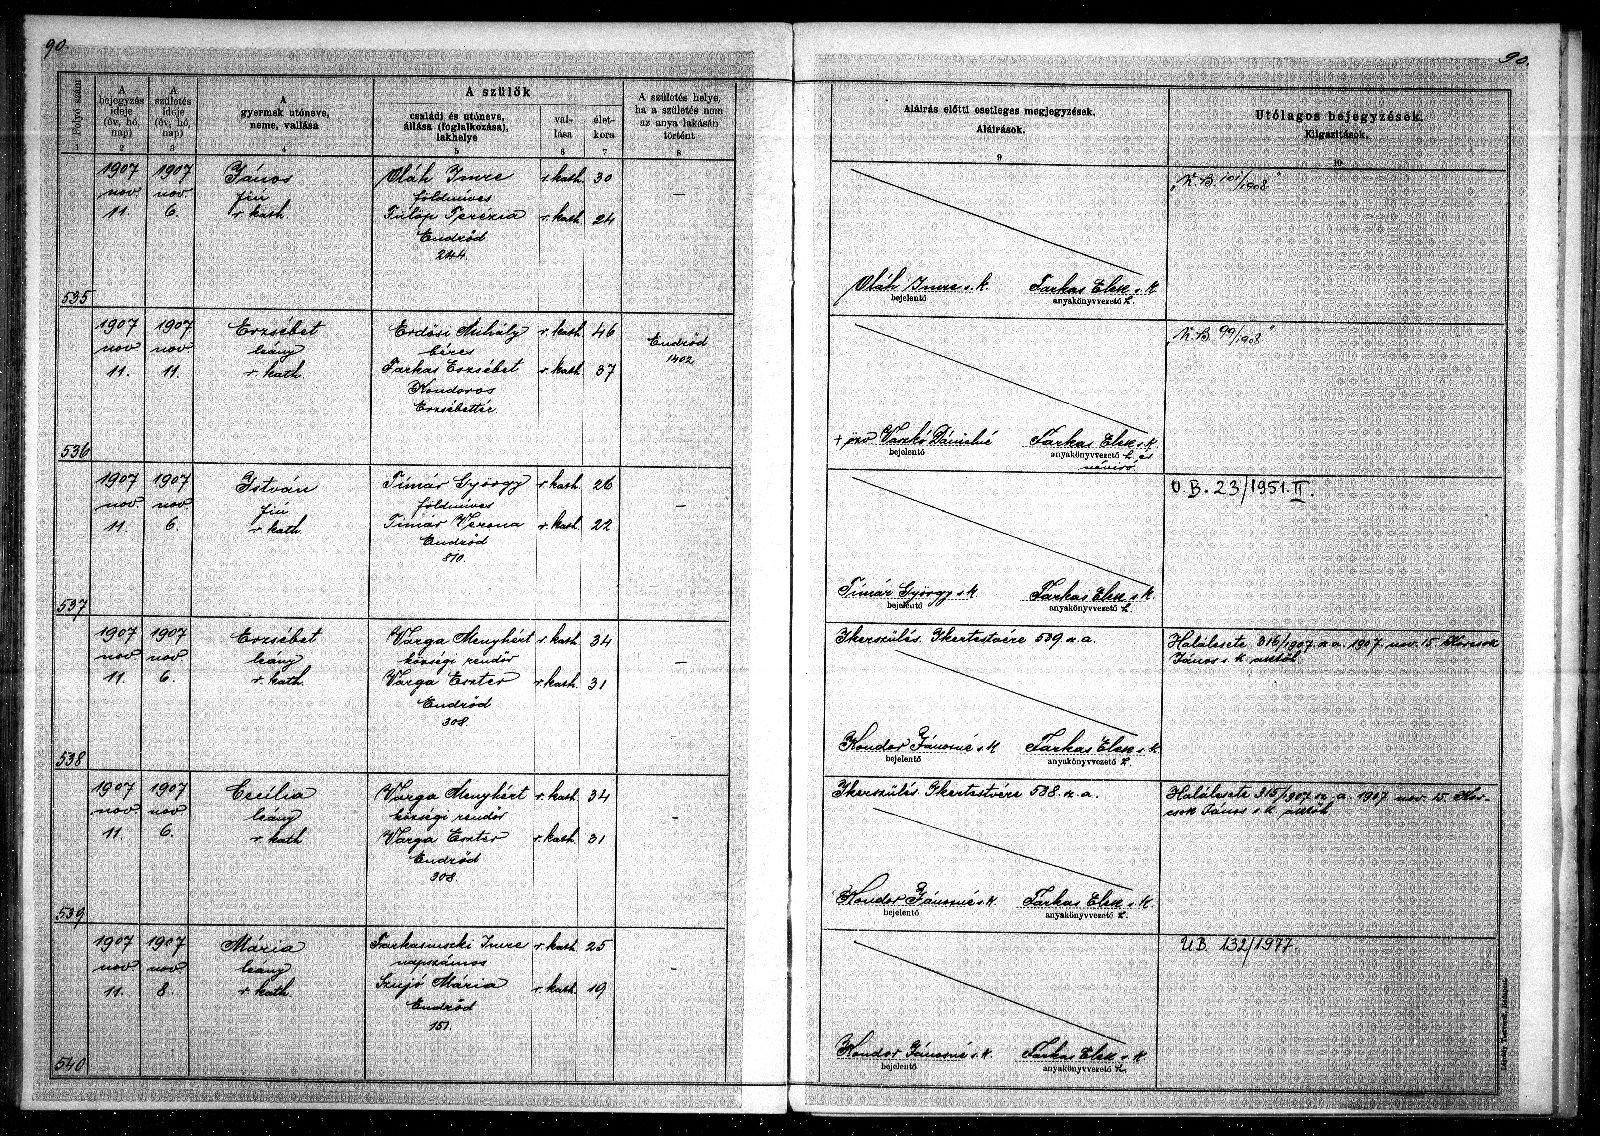 90.
90.
Folyó szám
A bejegyzés ideje (év, hó, nap)
A születés ideje (év, hó, nap)
A gyermek utóneve, neme, vallása
A szülők
családi és utóneve, állása (foglalkozása), lakhelye
vallása
életkora
A születés helye, ha a születés nem az anya lakásán történt
Aláírás előtti esetleges megjegyzések.
Aláírások.
Utólagos bejegyzések.
Kiigazítások.
1 2 3 4 5 6 7 8 9 10
535
1907 nov 11.
1907 nov. 6.
János
fiú
r. kath
Oláh Imre r. kath. 30
földmíves
Fülöp Terézia r. kath. 24
Endrőd
244.
—
Oláh Imre s. k.
bejelentő
Farkas Elek s. k.
anyakönyvvezető h.
"K. B. 101/1908"
536
1907 nov 11.
1907 nov. 11.
Erzsébet
leány
r. kath.
Erdősi Mihály r. kath. 46
béres
Farkas Erzsébet r. kath. 37
Kondoros
Erzsébettér
Endrőd
1402
+ özv Vaszkó Dánielné
bejelentő
Farkas Elek s. k.
anyakönyvvezető h. és
névíró
"K. B. 99/1908"
537
1907 nov. 11.
1907 nov 6.
István
fiú
r. kath
Tímár György r. kath. 26
földmíves
Tímár Verona r. kath. 22
Endrőd
810.
—
Tímár György s. k.
bejelentő
Farkas Elek s. k.
anyakönyvvezető h.
U. B. 23/1951. II.
538
1907 nov. 11.
1907 nov 6.
Erzsébet
leány
r. kath.
Varga Menyhért r. kath. 34
községi rendőr
Varga Eszter r. kath. 31
Endrőd
308.
—
Ikerszülés. Ikertestvére 539 sz. a.
Kondor Jánosné s. k.
bejelentő
Farkas Elek s. k.
anyakönyvvezető h.
Halálesete 316/1907. sz. a. 1907. nov. 15.
János s. k. aktők
539
1907 nov 11.
1907 nov 6.
Cecília
leány
r. kath
Varga Menyhért r. kath. 34
községi rendőr
Varga Eszter r. kath. 31
Endrőd
308.
—
Ikerszülés. Ikertestvére 538. sz. a.
Kondor Jánosné s. k.
bejelentő
Farkas Elek s. k.
anyakönyvvezető h.
Halálesete 315/907. sz. a. 1907 nov. 15.
János s. k.
540
1907 nov 11.
1907 nov. 8.
Mária
leány
r. kath.
Farkasinszki Imre r. kath. 25
napszámos
Szujó Mária r. kath. 19
Endrőd
151.
—
Kondor Jánosné s. k.
bejelentő
Farkas Elek s. k.
anyakönyvvezető h.
U.B. 132/1977.